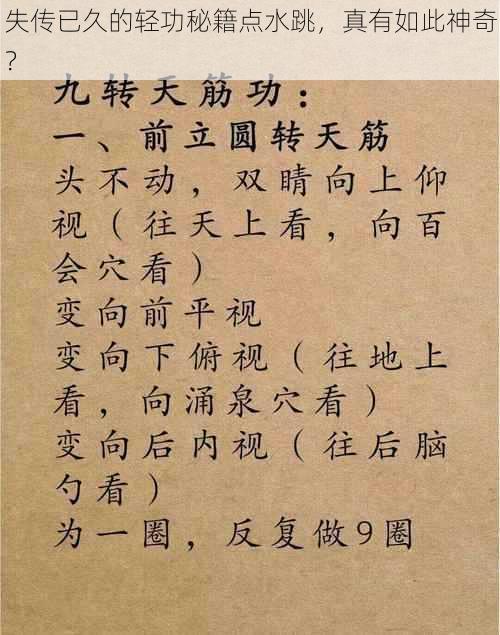 失传已久的轻功秘籍点水跳，真有如此神奇
？
九转天筋功：
一、前立圆转天筋
头不动，双睛向上仰
视（往天上看，向百
会穴看）
变向前平视
变向下俯视（往地上
看，向涌泉穴看）
变向后内视（往后脑
勺看）
为一圈，反复做9圈